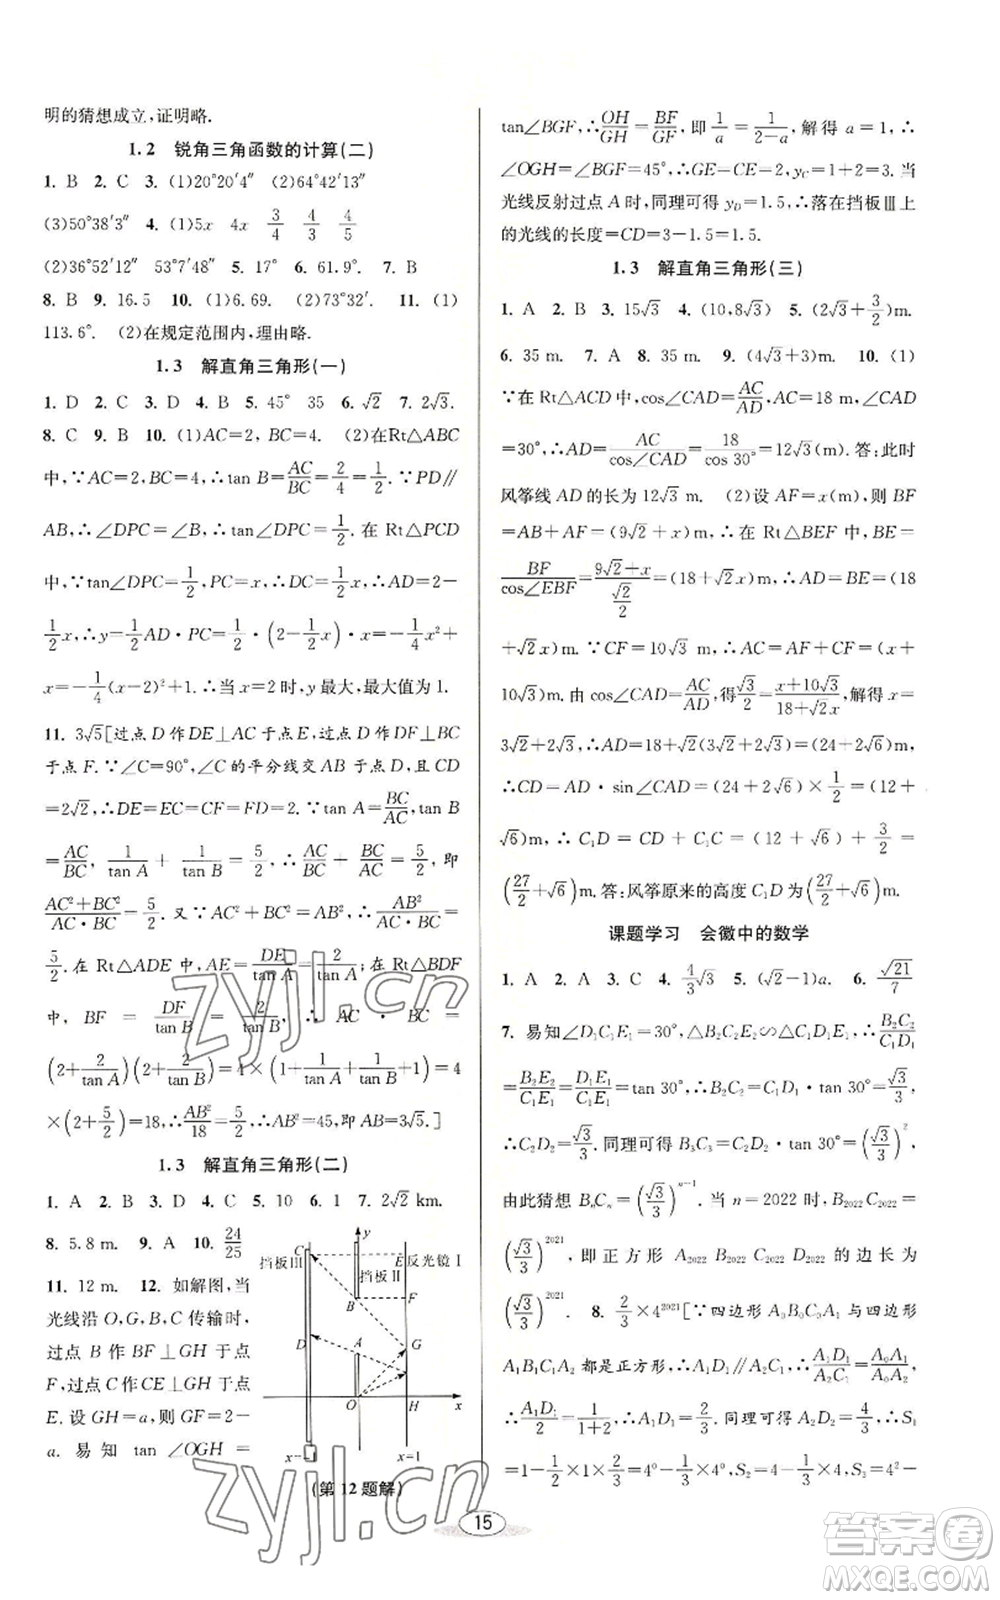 明的猜想成立,证明略.
1.2 锐角三角函数的计算(二)
1. B 2. C 3. (1)20°20′4″ (2)64°42′13″
(3)50°38′3″ 4. (1)5x 4x 3/4 3/5 4/5
(2)36°52′12″ 5. 17° 6. 61.9° 7. B
8. B 9. 16.5 10. (1)6.69. (2)73°32′. 11. (1)
113.6°. (2)在规定范围内,理由略.
1.3 解直角三角形(一)
1. D 2. C 3. D 4. B 5. 45° 35 6. √2 7. 2√3.
8. C 9. B 10. (1)AC=2, BC=4. (2)在Rt△ABC
中,∵AC=2,BC=4,∴tan B=AC/BC=2/4=1/2.∵PD∥
AB,∴∠DPC=∠B,∴tan∠DPC=1/2.在 Rt△PCD
中,∵tan∠DPC=1/2,PC=x,∴DC=1/2x,∴AD=2-
1/2x,∴y=1/2AD·PC=1/2·(2-1/2x)·x=-1/4x²+
x=-1/4(x-2)²+1.∴当 x=2时,y最大,最大值为1.
11. 3√5[过点D作DE⊥AC于点E,过点D作DF⊥BC
于点F.∵∠C=90°,∠C的平分线交AB于点D,且CD
=2√2,∴DE=EC=CF=FD=2.∵tan A=BC/AC,tan B
=AC/BC, 1/tan A + 1/tan B = 5/2,∴AC/BC + BC/AC = 5/2, 即
(AC²+BC²)/(AC·BC)=5/2.又∵AC²+BC²=AB²,∴AB²/(AC·BC)=
5/2.在 Rt△ADE 中,AE=DE/tan A=2/tan A;在 Rt△BDF
中, BF = DF/tan B = 2/tan B, ∴ AC · BC =
(2+2/tan A)(2+2/tan B)=4×(1/tan A+1/tan B+1)+4=4
×(2+5/2)=18,∴AB²/18=5/2,∴AB²=45,即AB=3√5.]
1.3 解直角三角形(二)
1. A 2. B 3. D 4. C 5. 10 6. 1 7. 2√2 km.
8. 5.8 m. 9. A 10. 24/25
11. 12 m. 12. 如解图,当
光线沿O,G,B,C传输时,
过点B作BF⊥GH于点
F,过点C作CE⊥GH于点
E.设GH=a,则GF=2-
a.易知 tan ∠OGH =
挡板Ⅲ C y E 反光镜Ⅰ
挡板Ⅱ
B F
D A G
O H x
x=-1 x=1
(第12题解)
tan∠BGF,∴OH/GH=BF/GF,即1/a=1/(2-a),解得 a=1,∴
∠OGH=∠BGF=45°,∴GE=CE=2,y_C=1+2=3.当
光线反射过点A时,同理可得 y_D=1.5,∴落在挡板Ⅲ上
的光线的长度=CD=3-1.5=1.5.
1.3 解直角三角形(三)
1. A 2. B 3. 15√3 4. (10,8√3) 5. (2√3+3/2)m.
6. 35 m. 7. A 8. A 9. (4√3+3)m. 10. (1)
∵在 Rt△ACD中,cos∠CAD=AC/AD,AC=18 m,∠CAD
=30°,∴AD=AC/cos∠CAD=18/cos 30°=12√3(m).答:此时
风筝线AD的长为12√3 m. (2)设 AF=x(m),则 BF
=AB+AF=(9√2+x)m,∴在 Rt△BEF 中,BE=
BF/cos∠EBF=(9√2+x)/(√2/2)=(18+√2x)m,∴AD=BE=(18
+√2x)m.∵CF=10√3 m,∴AC=AF+CF=(x+
10√3)m.由 cos∠CAD=AC/AD,得√3/2=(x+10√3)/(18+√2x),解得x=
3√2+2√3,∴AD=18+√2(3√2+2√3)=(24+2√6)m,
∴CD=AD·sin∠CAD=(24+2√6)×1/2=(12+
√6)m,∴C₁D = CD + C₁C = (12 + √6) + 3/2 =
(27/2+√6)m.答:风筝原来的高度C₁D为(27/2+√6)m.
课题学习 会徽中的数学
1. A 2. A 3. C 4. 4/3√3 5. (√2-1)a. 6. √21/7
7. 易知∠D₁C₁E₁=30°,△B₂C₂E₂∽△C₁D₁E₁,∴B₂C₂/C₁E₁
=B₂E₂/C₁E₁=D₁E₁/C₁E₁=tan 30°=√3/3,∴B₂C₂=tan 30°=√3/3,
∴C₂D₂=√3/3.同理可得 B₃C₃=C₂D₂·tan 30°=(√3/3)²,
由此猜想 BₙCₙ=(√3/3)ⁿ⁻¹.当 n=2022时,B₂₀₂₂C₂₀₂₂=
(√3/3)²⁰²¹,即正方形 A₂₀₂₂B₂₀₂₂C₂₀₂₂D₂₀₂₂的边长为
(√3/3)²⁰²¹. 8. 2/3×4²⁰²¹[∵四边形A₀B₀C₀A₁与四边形
A₁B₁C₁A₂都是正方形,∴A₁D₁∥A₂C₁,∴A₁D₁/A₂C₁=A₀A₁/A₀A₂,
∴A₁D₁/2=1/(1+2),∴A₁D₁=2/3.同理可得A₂D₂=4/3,∴S₁
=1-1/2×1×2/3=4⁰-4⁰/3,S₂=4-1/2×2×4/3=4¹-4¹/3,
15
zyjl.cn
zyjl.cn
答案卷
MXQE.COM